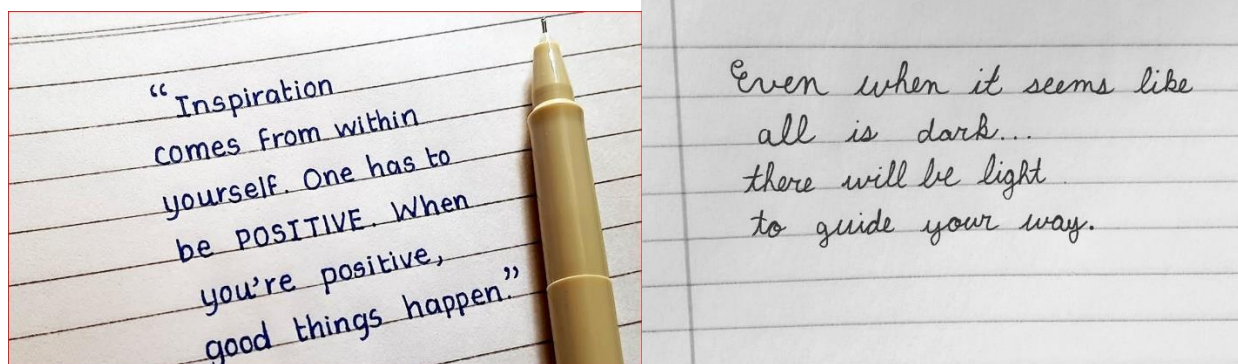 “Inspiration
comes from within
yourself. One has to
be POSITIVE. When
you're positive,
good things happen.”
Even when it seems like
all is dark...
there will be light
to guide your way.